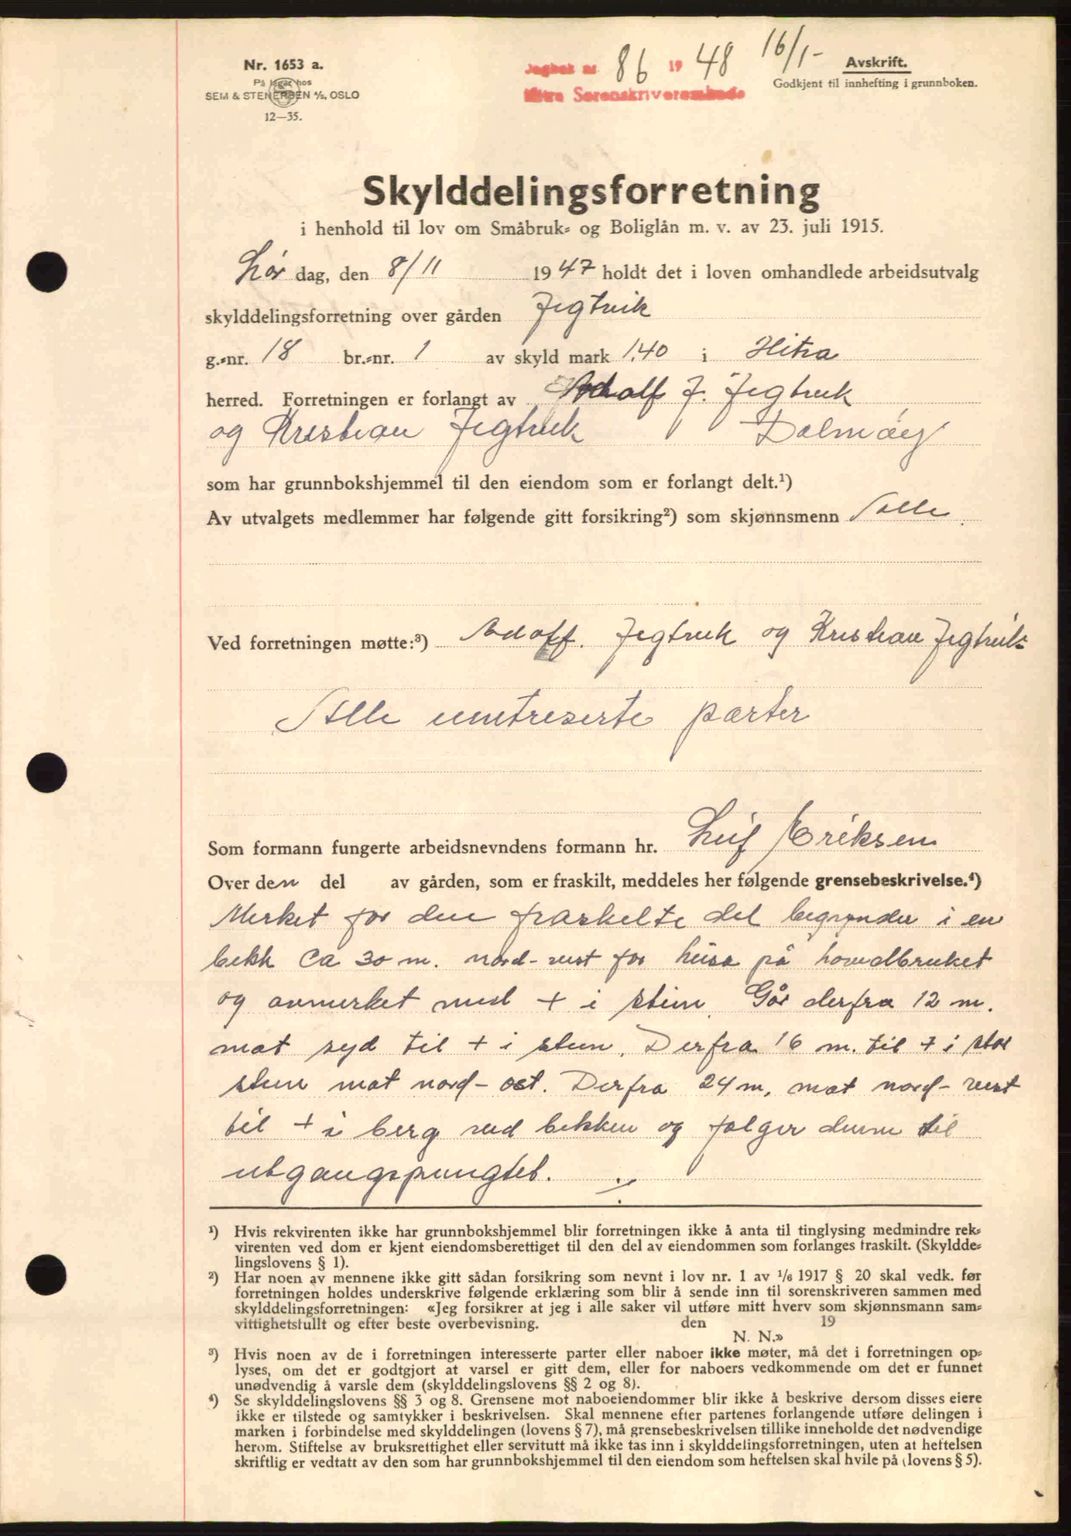 Nr. 1653 a.
På lager hos
SEM & STENERSEN A/S, OSLO
12—35.
Dagbok nr. 86 19 48 16/1-
Hitra Sorenskriverembede
Avskrift.
Godkjent til innhefting i grunnboken.
Skylddelingsforretning
i henhold til lov om Småbruk- og Boliglån m. v. av 23. juli 1915.
Lør dag, den 8/11 1947 holdt det i loven omhandlede arbeidsutvalg
skylddelingsforretning over gården Jegtvik
g.-nr. 18 br.-nr. 1 av skyld mark 1.40 i Hitra
herred. Forretningen er forlangt av Adolf J. Jegtvik
og Kristian Jegtvik Dolmøy
som har grunnbokshjemmel til den eiendom som er forlangt delt.¹)
Av utvalgets medlemmer har følgende gitt forsikring²) som skjønnsmenn Alle
Ved forretningen møtte:³) Adolf. Jegtvik og Kristian Jegtvik
Alle untreserte parter
Som formann fungerte arbeidsnevndens formann hr. Leif Eriksen
Over den del av gården, som er fraskilt, meddeles her følgende grensebeskrivelse.⁴)
Merket for den fraskelte del begynder i en
bekk ca 30 m. nord-vest for husa på hovedbruket
og avmerket med + i stein. Går derfra 12 m.
mot syd til + i stein. Derfra 16 m. til + i stor
stein mot nord-ost. Derfra 24 m. mot nord-vest
til + i berg ved bekken og følger denne til
utgangspungtet. ./.
¹) Hvis rekvirenten ikke har grunnbokshjemmel blir forretningen ikke å anta til tinglysing medmindre rek-
virenten ved dom er kjent eiendomsberettiget til den del av eiendommen som forlanges fraskilt. (Skyldde-
lingslovens § 1).
²) Har noen av mennene ikke gitt sådan forsikring som nevnt i lov nr. 1 av 1/6 1917 § 20 skal vedk. før
forretningen holdes underskrive følgende erklæring som blir å sende inn til sorenskriveren sammen med
skylddelingsforretningen: «Jeg forsikrer at jeg i alle saker vil utføre mitt hverv som skjønnsmann sam-
vittighetsfullt og efter beste overbevisning. den 19
N. N.»
³) Hvis noen av de i forretningen interesserte parter eller naboer ikke møter, må det i forretningen op-
lyses, om det er godtgjort at varsel er gitt dem, eller for naboers vedkommende om det er funnet
unødvendig å varsle dem (skylddelingslovens §§ 2 og 8).
⁴) Se skylddelingslovens §§ 3 og 8. Grensene mot naboeiendommer blir ikke å beskrive dersom disses eiere
ikke er tilstede og samtykker i beskrivelsen. Skal mennene efter partenes forlangende utføre delingen i
marken i forbindelse med skylddelingen (lovens § 7), må grensebeskrivelsen tillike inneholde det nødvendige
herom. Stiftelse av bruksrettighet eller servitutt må ikke tas inn i skylddelingsforretningen, uten at heftelsen
skriftlig er vedtatt av den som har grunnbokshjemmel til den eiendom som heftelsen skal hvile på (lovens § 5).